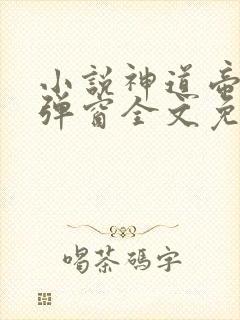 小說神道
彈窗全文免
喝茶碼字